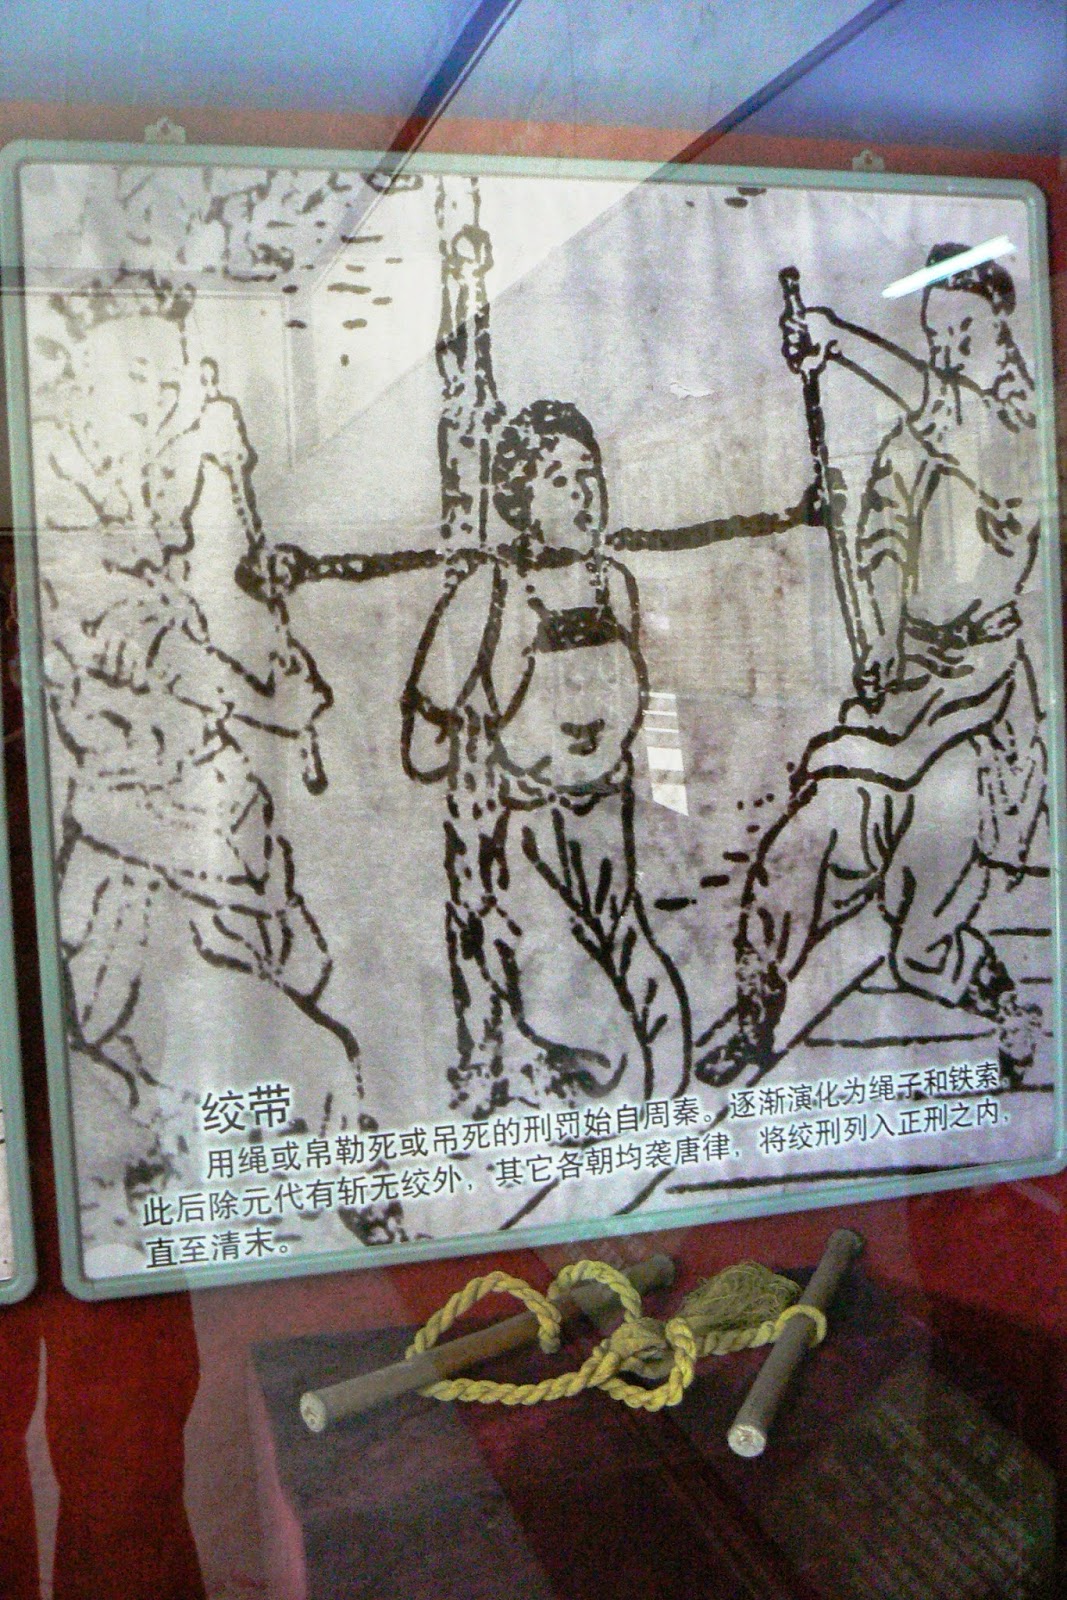 绞带
用绳或帛勒死或吊死的刑罚始自周秦。逐渐演化为绳子和铁索，
此后除元代有斩无绞外，其它各朝均袭唐律，将绞刑列入正刑之内，
直至清末。